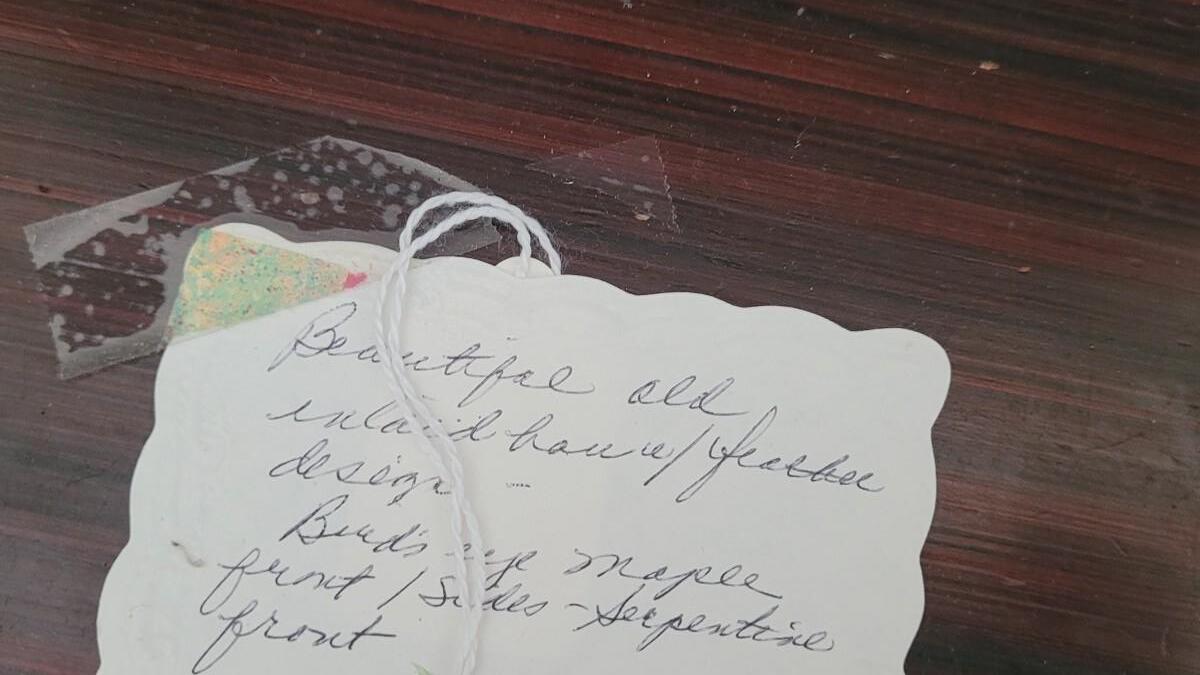 Beautiful old
inlaid box w/ feather
design -
Bird's eye Maple
front / Sides - Serpentine
front